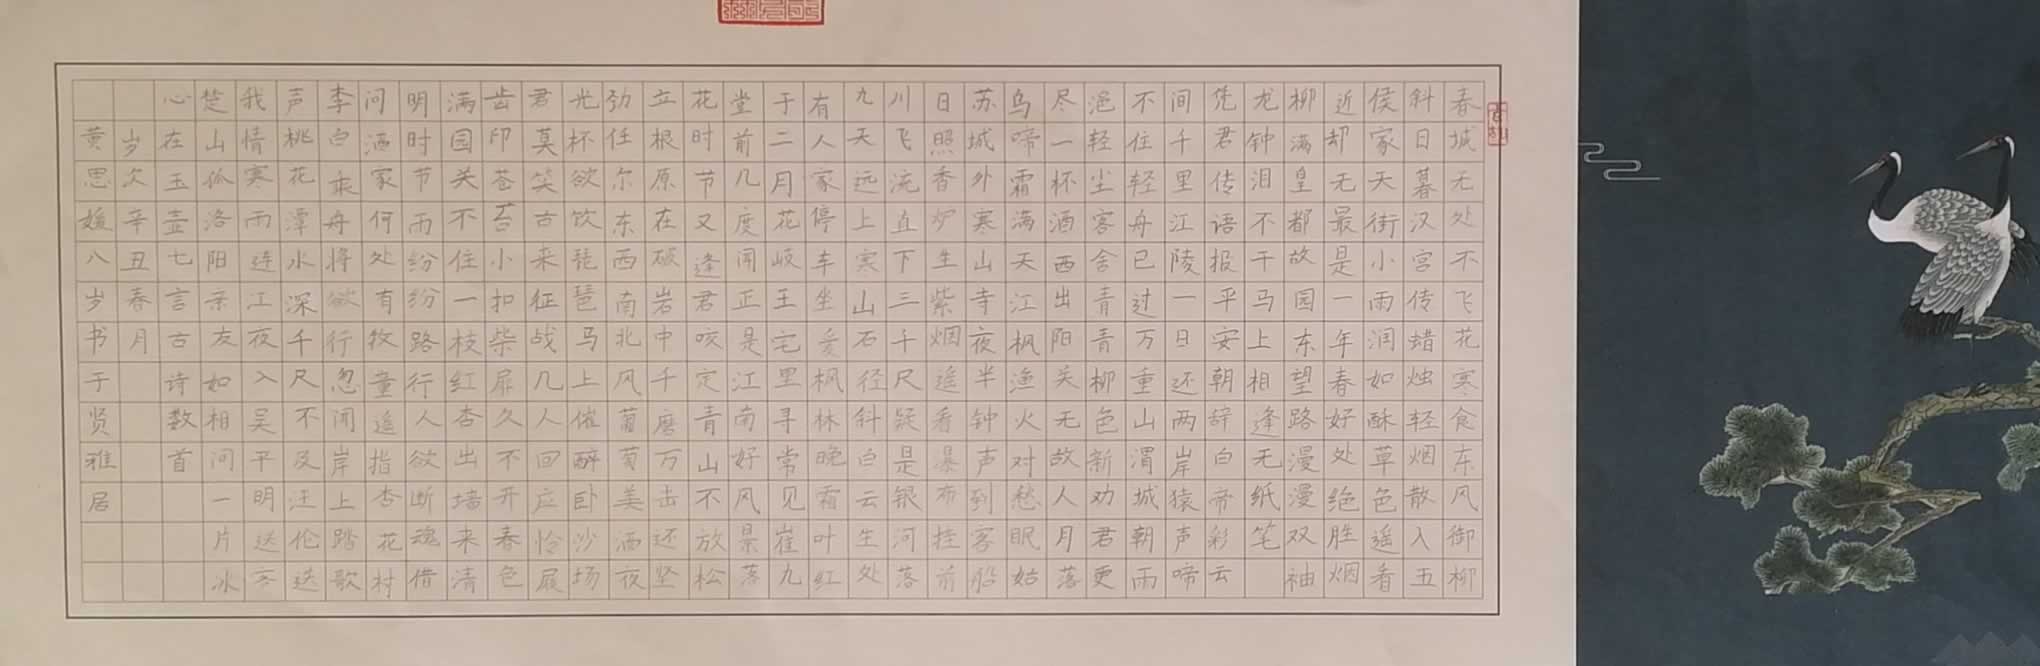 春城无处不飞花寒食东风御柳
斜日暮汉宫传蜡烛轻烟散入五
侯家天街小雨润如酥草色遥看
近却无最是一年春好处绝胜烟
柳满皇都故园东望路漫漫双袖
龙钟泪不干马上相逢无纸笔
凭君传语报平安朝辞白帝彩云
间千里江陵一日还两岸猿声啼
不住轻舟已过万重山渭城朝雨
浥轻尘客舍青青柳色新劝君更
尽一杯酒西出阳关无故人月落
乌啼霜满天江枫渔火对愁眠姑
苏城外寒山寺夜半钟声到客船
日照香炉生紫烟遥看瀑布挂前
川飞流直下三千尺疑是银河落
九天远上寒山石径斜白云生处
有人家停车坐爱枫林晚霜叶红
于二月花岐王宅里寻常见崔九
堂前几度闻正是江南好风景落
花时节又逢君咬定青山不放松
立根原在破岩中千磨万击还坚
劲任尔东西南北风葡萄美酒夜
光杯欲饮琵琶马上催醉卧沙场
君莫笑古来征战几人回应怜屐
齿印苍苔小扣柴扉久不开春色
满园关不住一枝红杏出墙来清
明时节雨纷纷路行人欲断魂借
问酒家何处有牧童遥指杏花村
李白乘舟将欲行忽闻岸上踏歌
声桃花潭水深千尺不及汪伦送
我情寒雨连江夜入吴平明送客
楚山孤洛阳亲友如相问一片冰
心在玉壶七言古诗数首
岁次辛丑春月
黄思媛八岁书于贤雅居